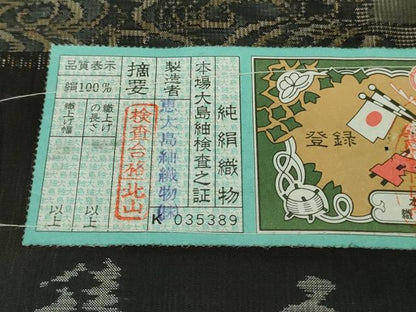 純絹織物
本場大島紬検査之証
製造者
恵大島紬織物㈱
摘要
検査合格北山
品質表示
絹100%
織上げの長さ
以上
織上げ幅
以上
K 035389
登録